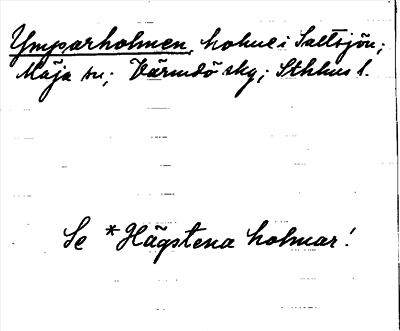 Ymparholmen, holme i Saltsjön;
Möja sn; Värmdö skg; Sthlms l.
Se *Hägstena holmar!